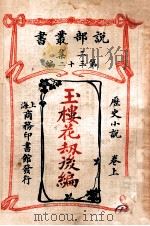 說部叢書
第二集
第三十二編
歷史小說 卷上
玉樓花劫後編
上海商務印書館發行